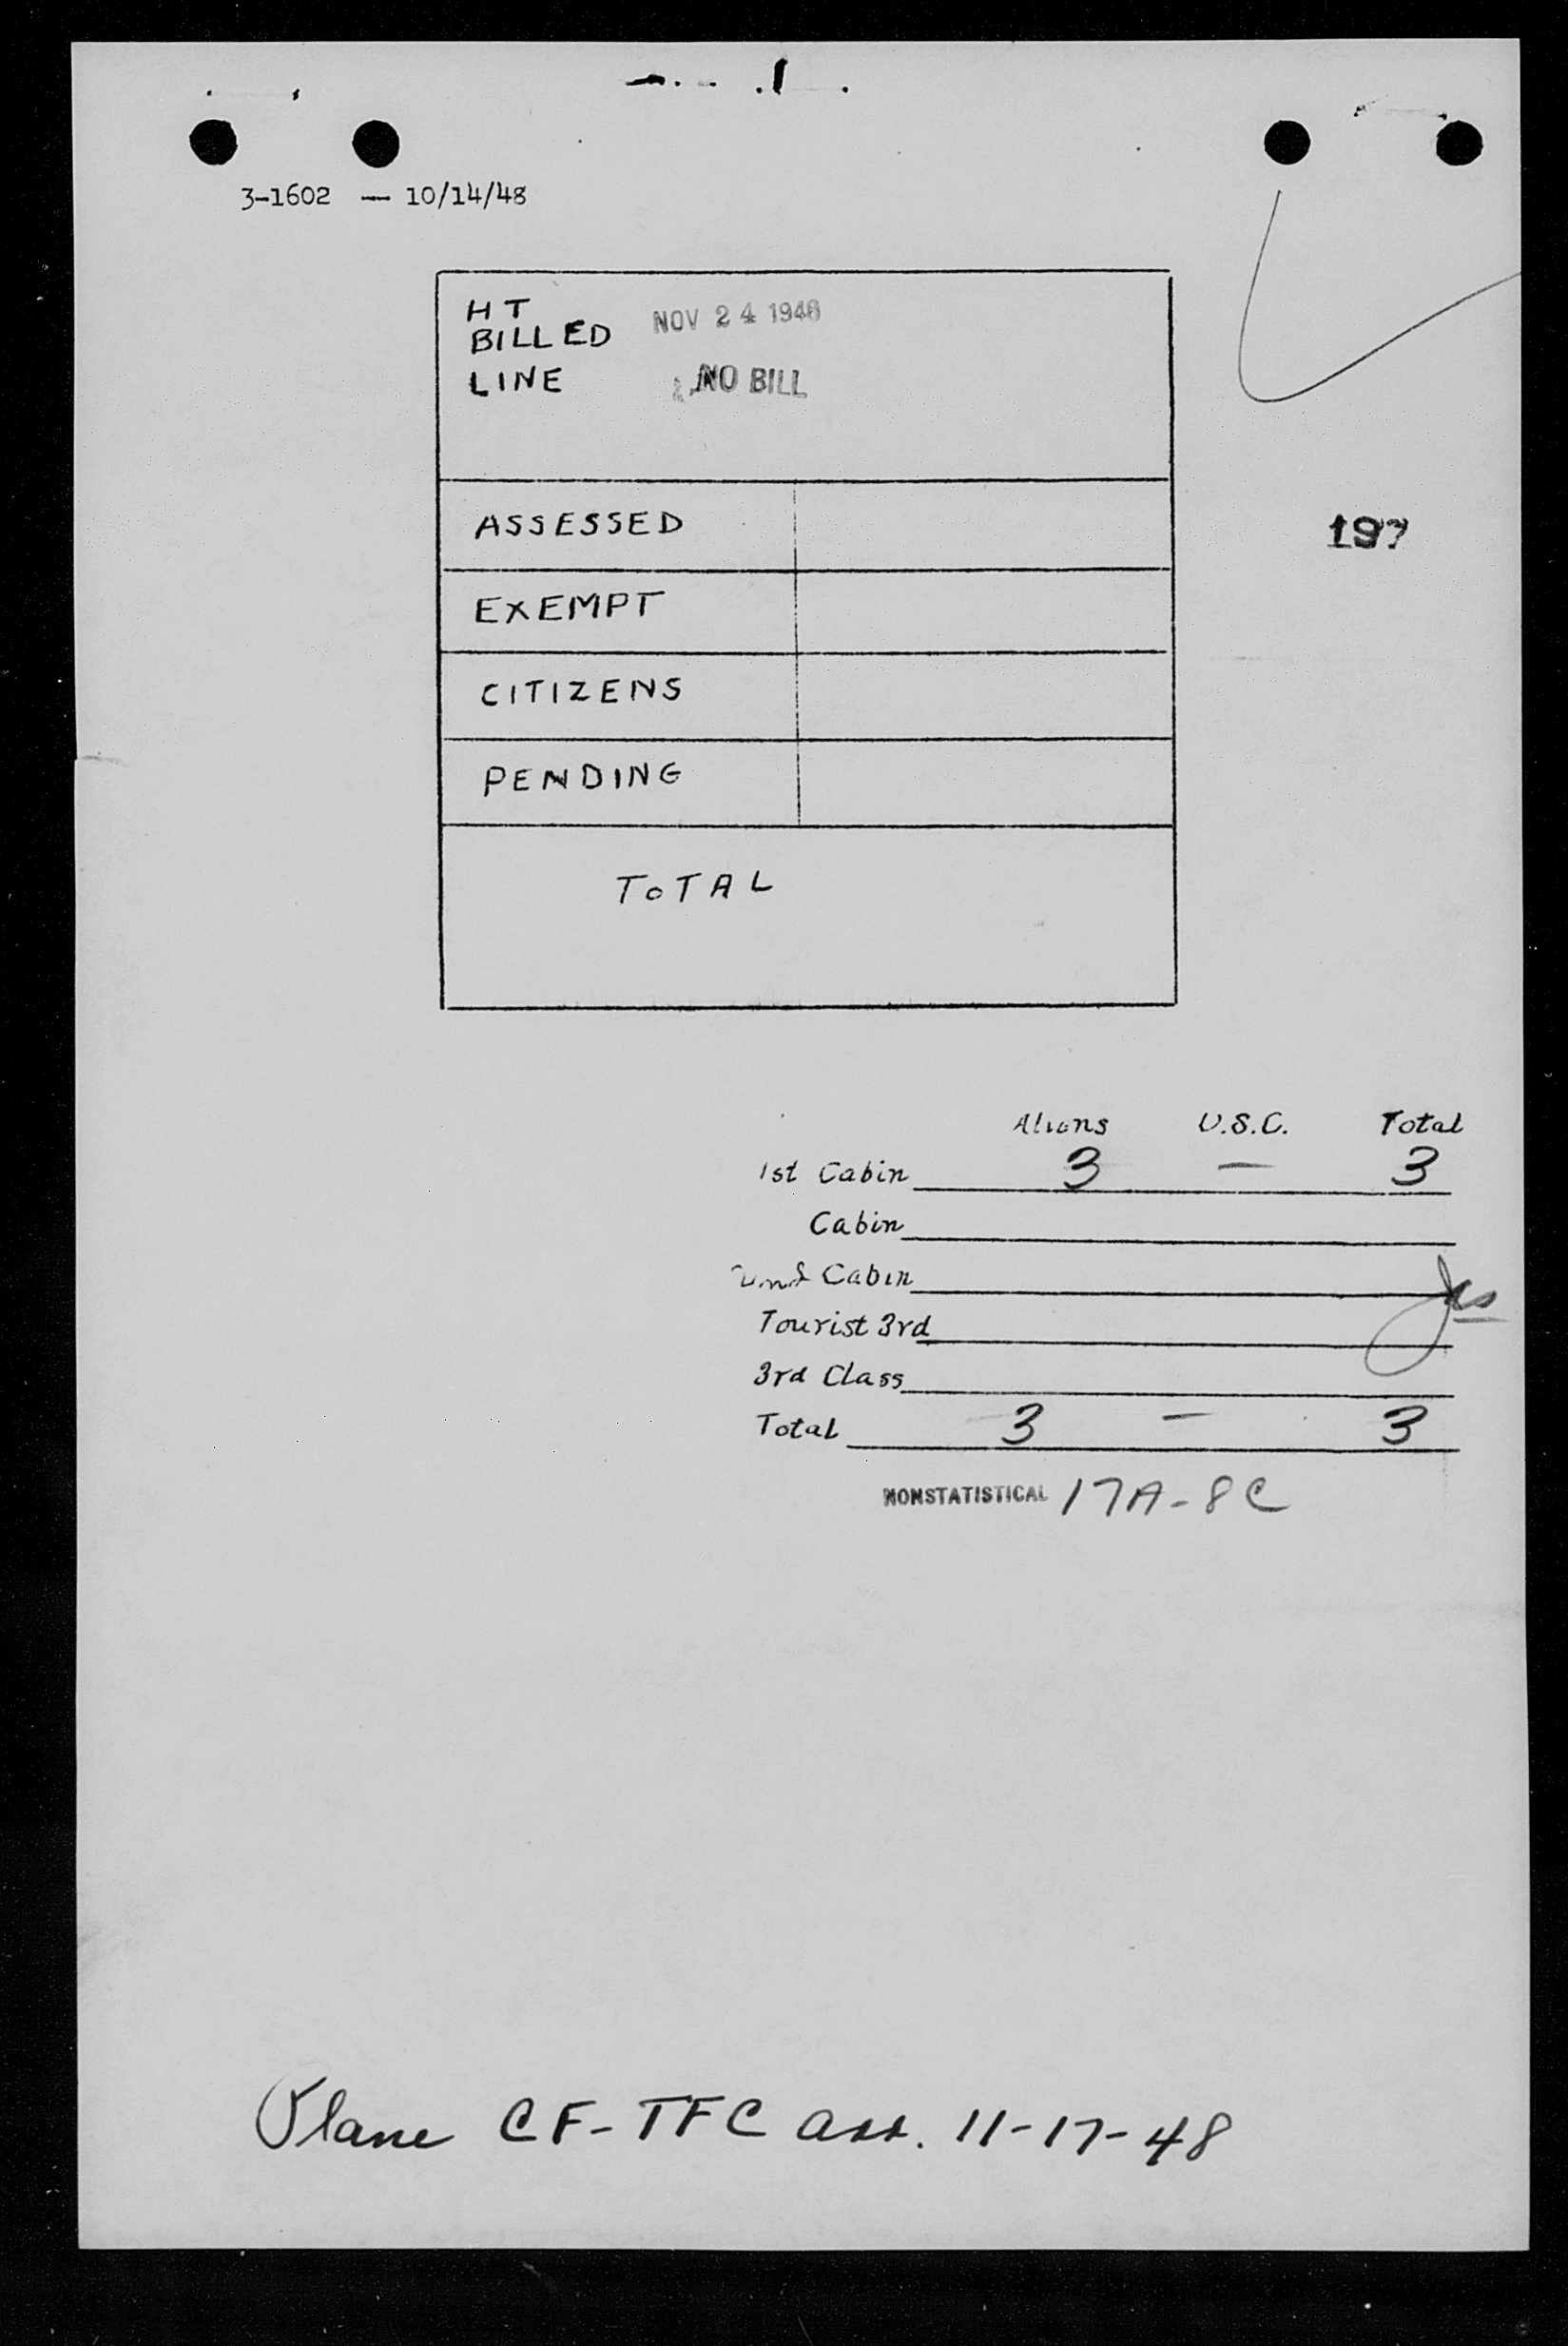 3-1602 — 10/14/48
HT
BILLED NOV 24 1948
LINE NO BILL
197
ASSESSED
EXEMPT
CITIZENS
PENDING
TOTAL
Aliens U.S.C. Total
1st Cabin 3 — 3
Cabin
2nd Cabin
Tourist 3rd
3rd Class
Total 3 — 3
NONSTATISTICAL 17A-8C
Plane CF-TFC arr. 11-17-48